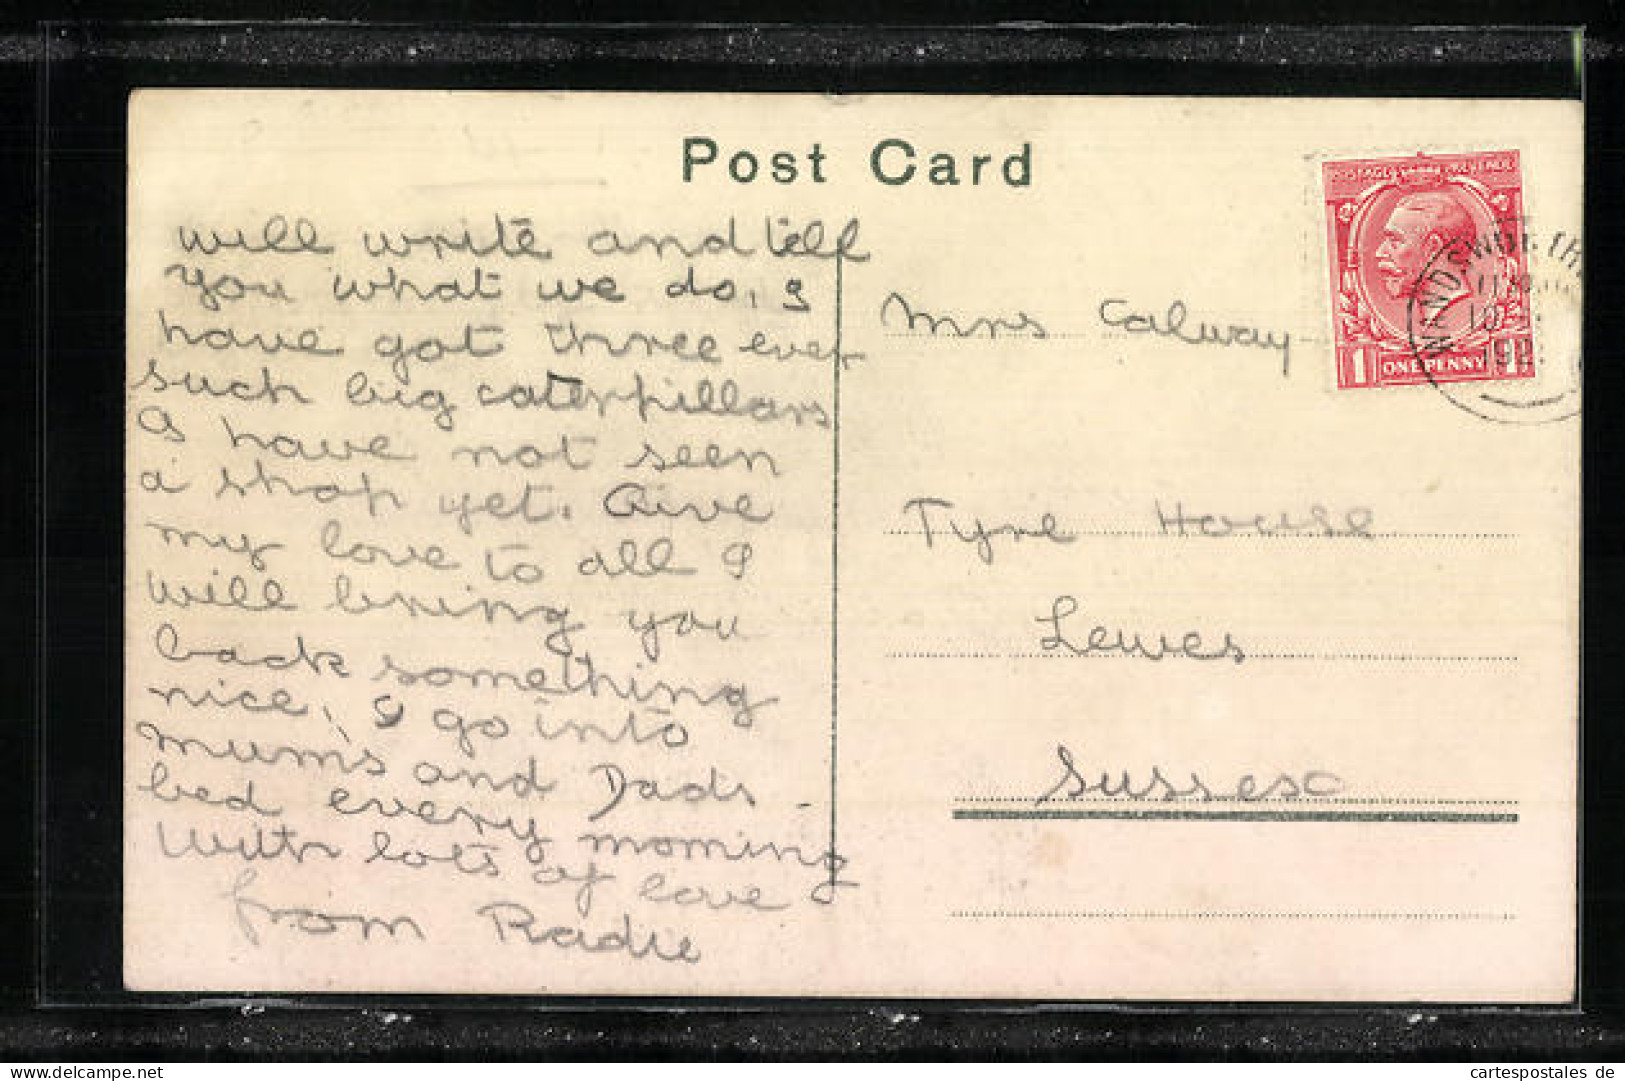 Post Card
will write and tell
you what we do, I
have got three ever
such big caterpillars
I have not seen
a shop yet. Give
my love to all I
will bring you
back something
nice, I go into
mum's and Dads
bed every morning
With lots of love
from Radie
Mrs Calway
Tyne House
Lewes
Sussex
POSTAGE REVENUE
1 ONE PENNY 1
WANDSWORTH
cartespostales de